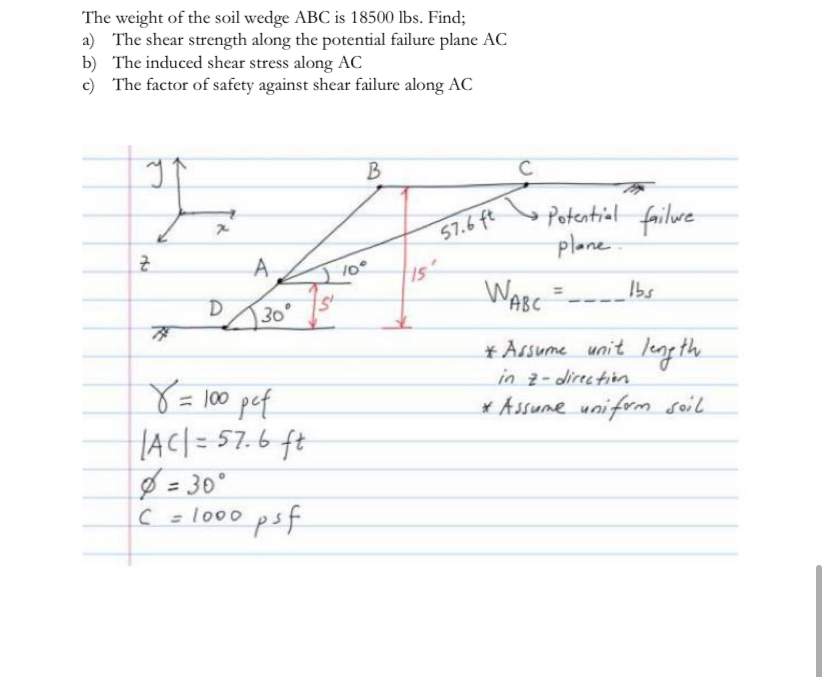 The weight of the soil wedge ABC is 18500 lbs. Find;
a) The shear strength along the potential failure plane AC
b) The induced shear stress along AC
c) The factor of safety against shear failure along AC
y
B
C
x
57.6 ft
Potential failure
plane.
z
A
10°
15'
W_ABC = ____ lbs
D
30°
5'
* Assume unit length
in z-direction
* Assume uniform soil
γ = 100 pcf
|AC| = 57.6 ft
ø = 30°
C = 1000 psf